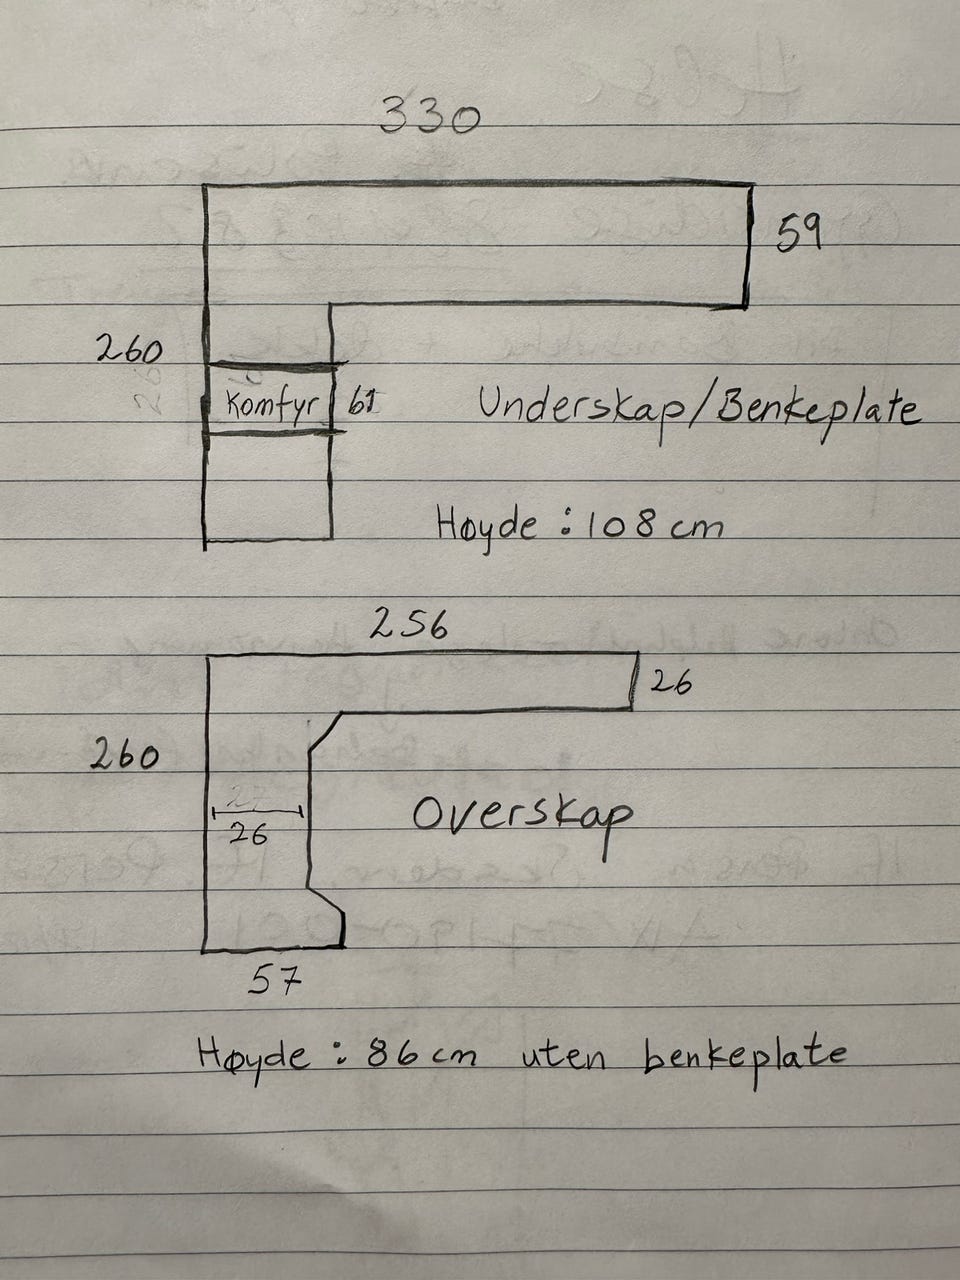 330
59
260
Komfyr 61
Underskap/Benkeplate
Høyde : 108 cm
256
26
260
26
Overskap
57
Høyde : 86 cm uten benkeplate